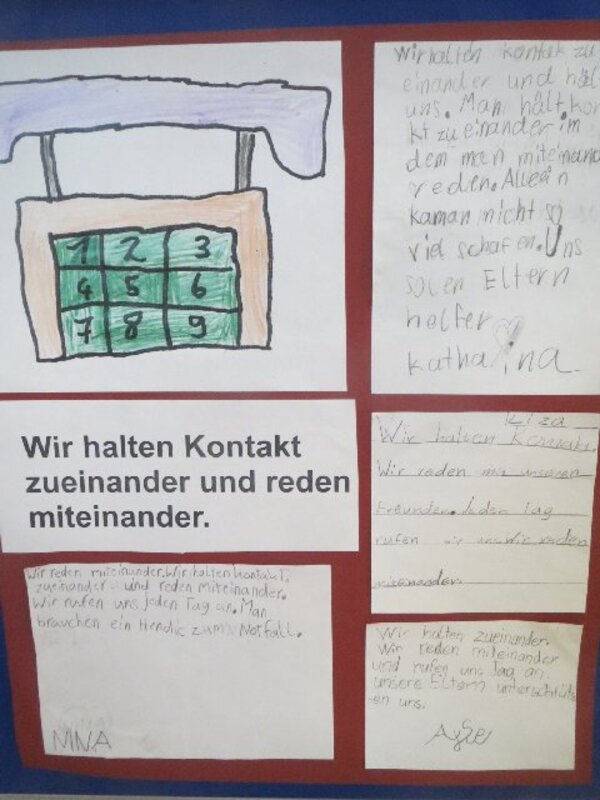 1 2 3
4 5 6
7 8 9
Wir halten Kontakt
zueinander und reden
miteinander.
Wir halten kontak zu
einander und häl
uns. Man hält kon
kt zu einander im
dem man miteinand
reden. Allein
kaman nicht so
viel schafen. Uns
solen Eltern
helfer
Katharina
Elza
Wir halten Kontakt.
Wir reden mit unseren
Freunden. Jeden Tag
rufen wir uns. Wir reden
miteinander.
Wir reden miteinander. Wir halten kontakt
zueinander und reden miteinander.
Wir rufen uns jeden Tag an. Man
brauchen ein Hendie zum Notfall.
NINA
Wir halten zueinander.
Wir reden miteinander
und rufen uns Tag an
unsere Eltern unterschtüts
en uns.